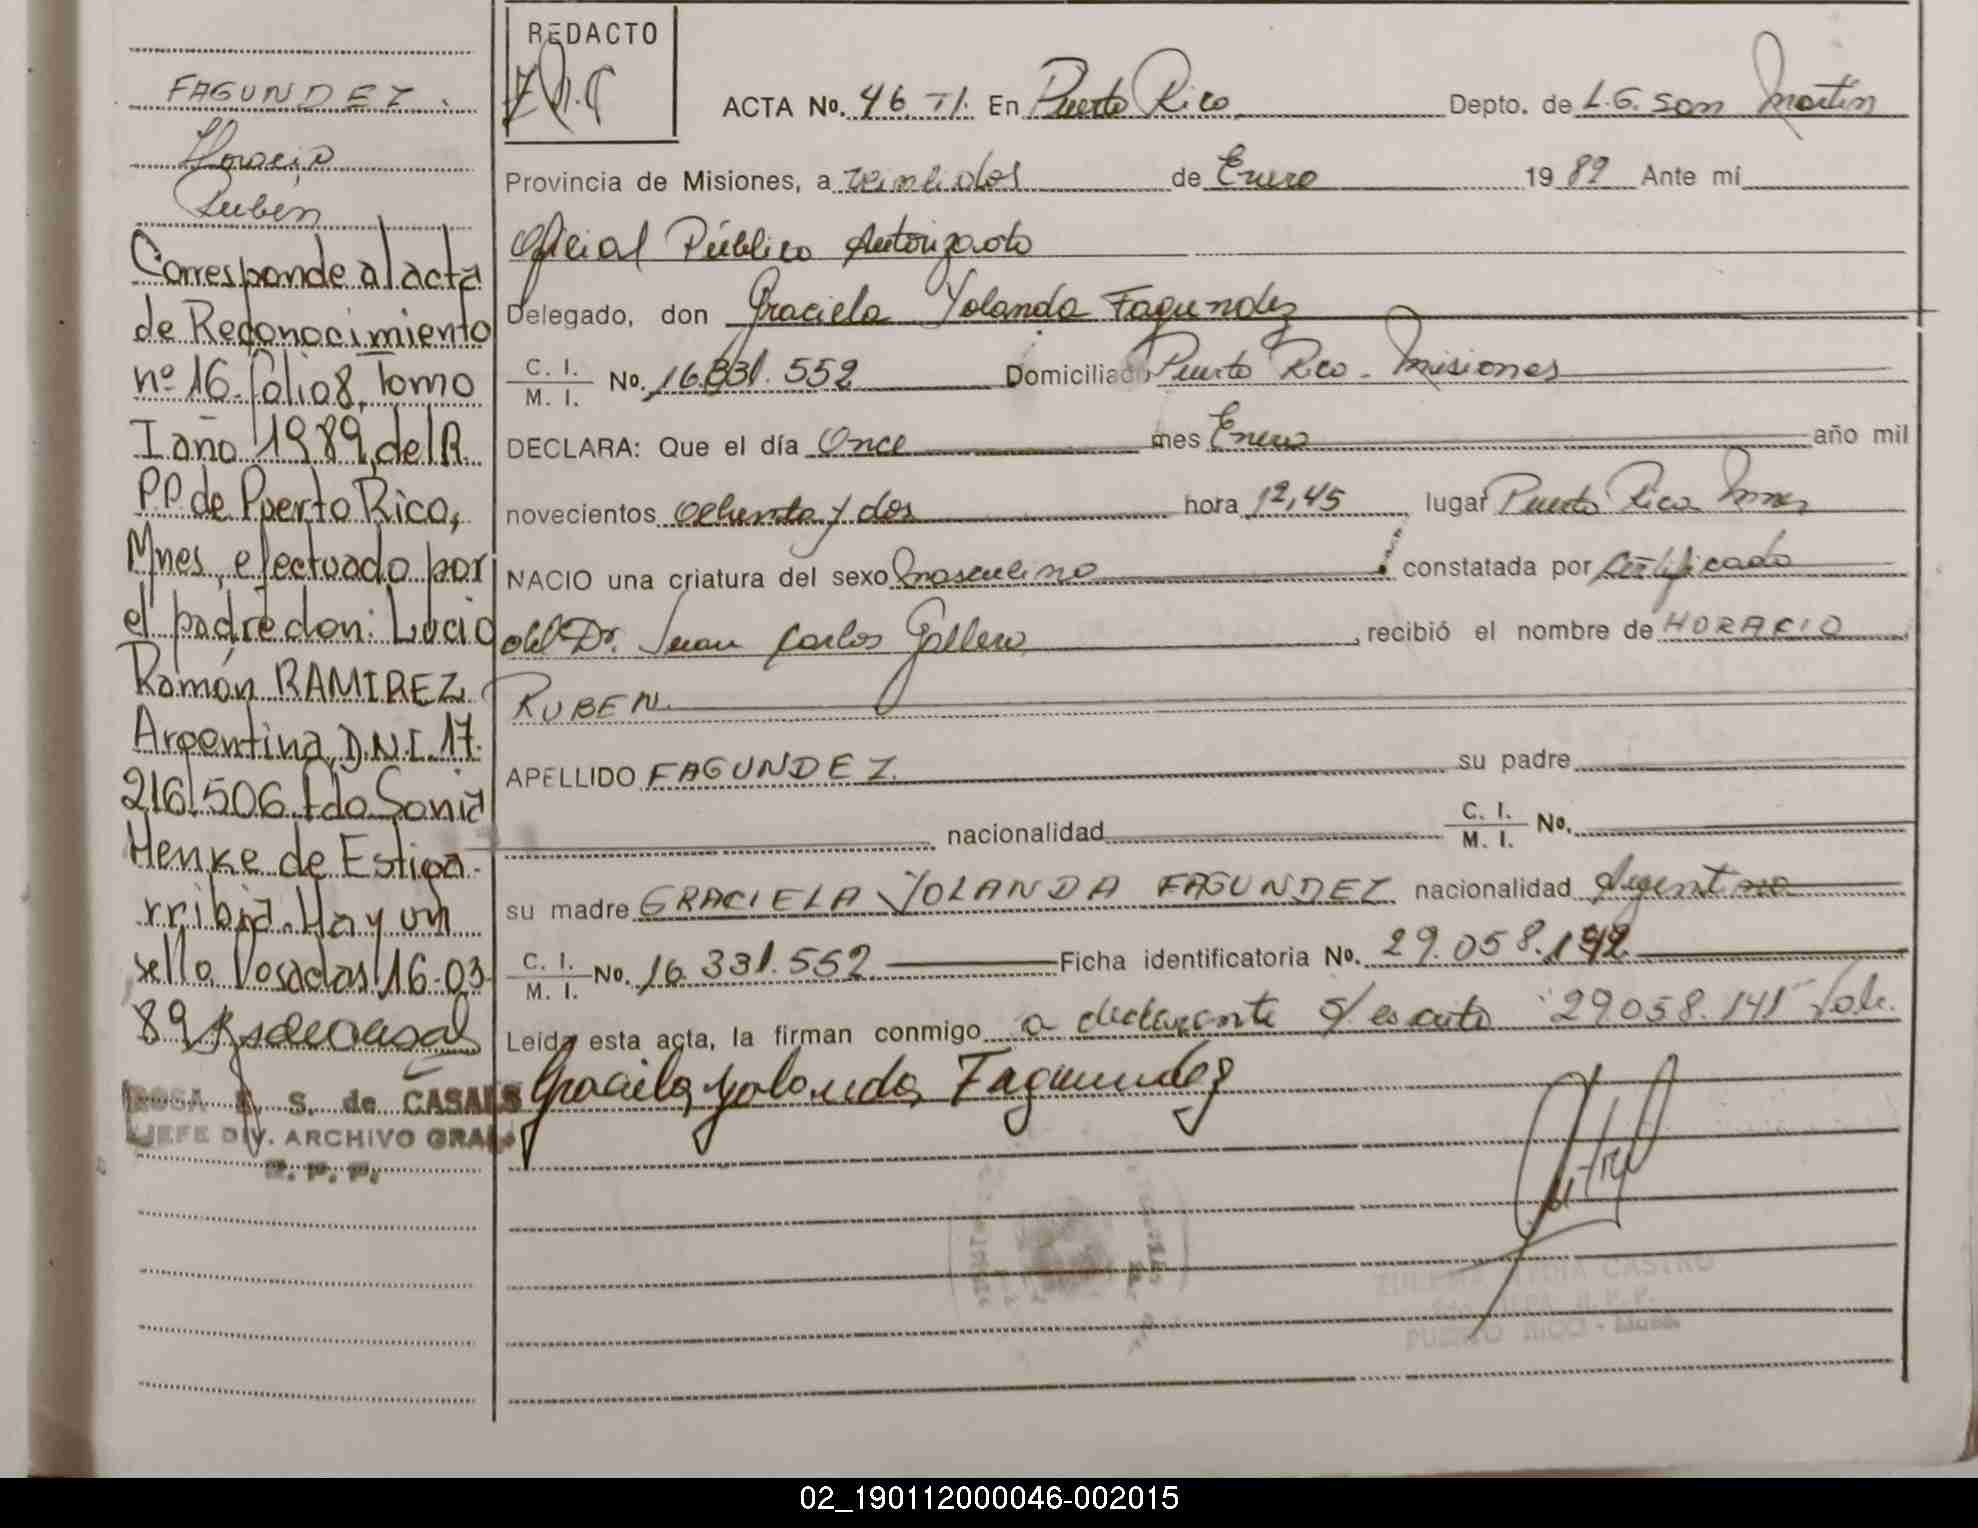 FAGUNDEZ.
Horacio
Ruben
Corresponde al acta
de Reconocimiento
nº 16 folio 8, Tomo
I año 1989, del R.
P.P. de Puerto Rico,
Mnes, efectuado por
el padre don: Lucio
Ramón RAMIREZ
Argentina, D.N.I. 17.
216.506. Fdo Sonia
Henke de Estiga-
rribia. Hay un
sello. Posadas 16-03-
89
ROSA S. de CASALS
JEFE DIV. ARCHIVO GRAL.
R. P. P.
REDACTO
ACTA No. 46 TI. En Puerto Rico Depto. de L.G. San Martin
Provincia de Misiones, a veintidos de Enero 1989 Ante mí
Oficial Público Autorizado
Delegado, don Graciela Yolanda Fagundez
C. I. / M. I. No. 16.331.552 Domiciliado Puerto Rico - Misiones
DECLARA: Que el día Once mes Enero año mil
novecientos ochenta y dos hora 12,45 lugar Puerto Rico Mnes
NACIO una criatura del sexo masculino constatada por certificado
del Dr. Juan Carlos Gallero, recibió el nombre de HORACIO
RUBEN.
APELLIDO FAGUNDEZ. su padre
nacionalidad C. I. / M. I. No.
su madre GRACIELA YOLANDA FAGUNDEZ nacionalidad Argentina
C. I. / M. I. No. 16.331.552 Ficha identificatoria No. 29.058.142
Leída esta acta, la firman conmigo a declarante 29.058.141 Vale.
Graciela Yolanda Fagundez
ZULEMA LYDIA CASTRO
R. P. P.
PUERTO RICO - Mnes.
02_190112000046-002015